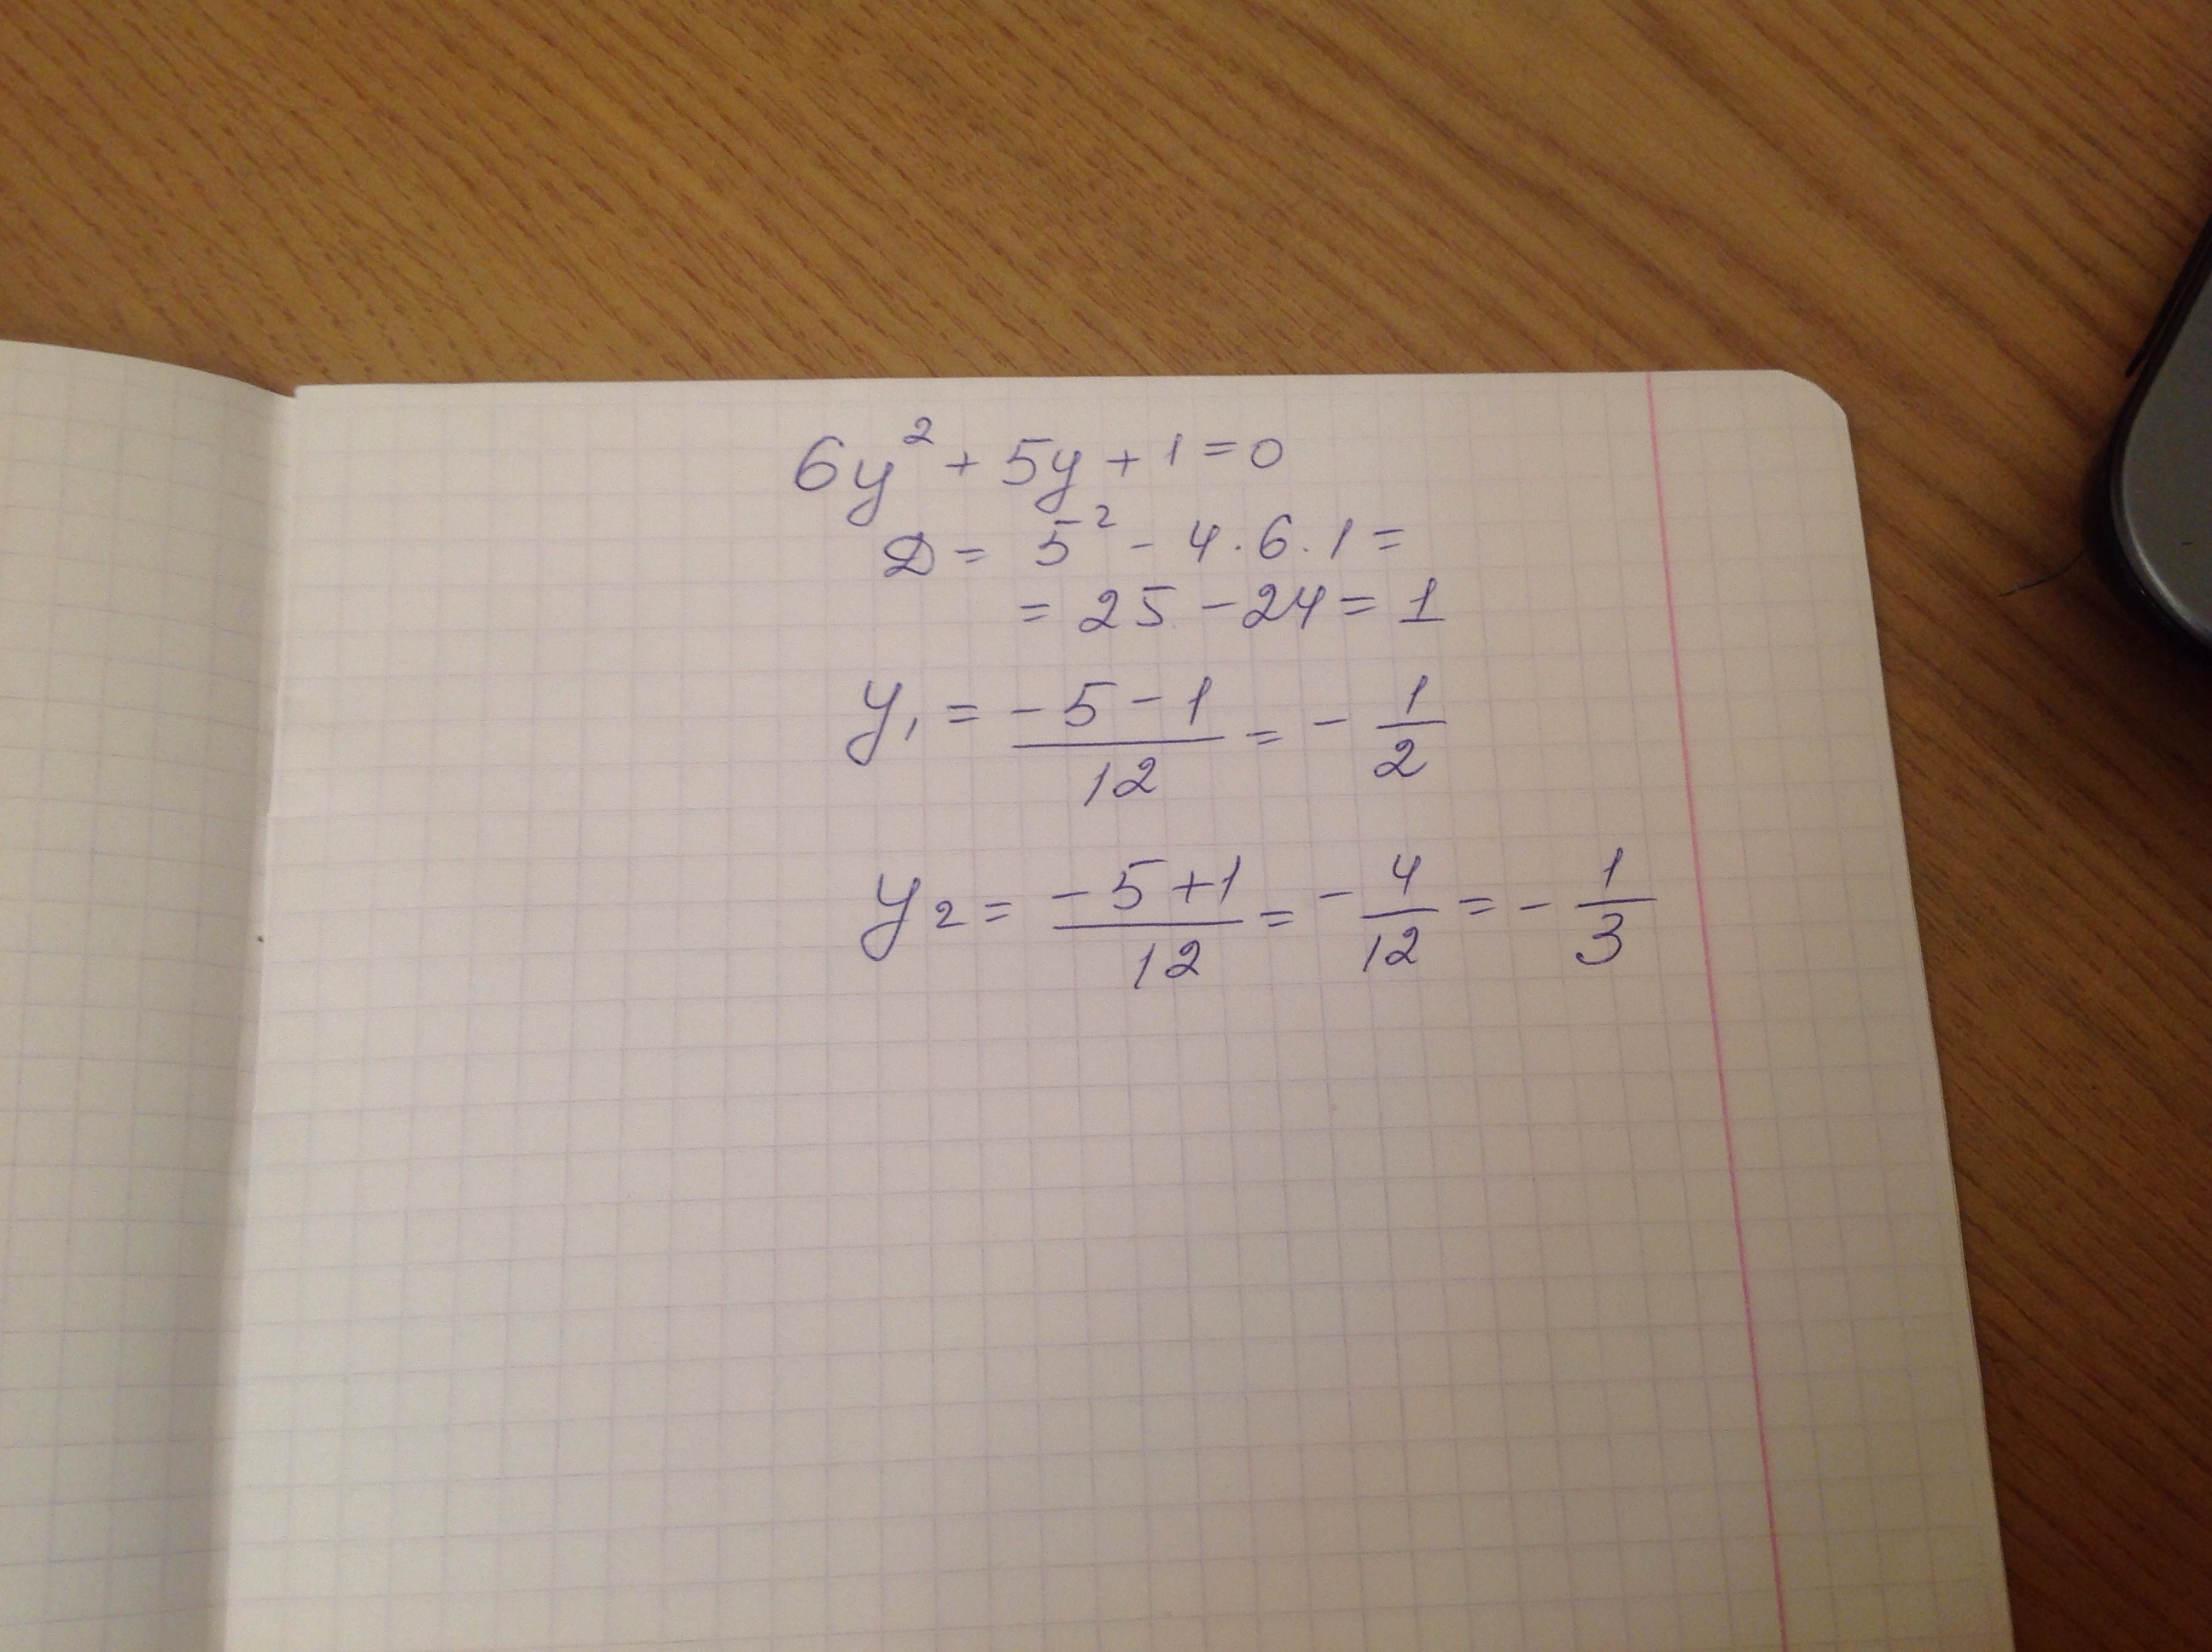 6y² + 5y + 1 = 0
D = 5² - 4 · 6 · 1 =
= 25 - 24 = 1
y₁ = \frac{-5-1}{12} = -\frac{1}{2}
y₂ = \frac{-5+1}{12} = -\frac{4}{12} = -\frac{1}{3}